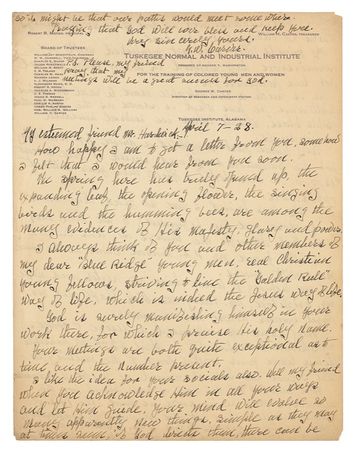 so it might be that our paths would meet some where.
Praying that God will ever bless and keep you.
Very sincerely yours
G. W. Carver.
TUSKEGEE NORMAL AND INDUSTRIAL INSTITUTE
FOR THE TRAINING OF COLORED YOUNG MEN AND WOMEN
BOARD OF TRUSTEES
P.S. Please, my friend
that my
meetings will be a great success for God.
TUSKEGEE INSTITUTE, ALABAMA
April 7-28.
My esteemed friend Mr. Hardwick:
How happy I am to get a letter from you, somehow
I felt that I would hear from you soon.
The spring here has truly opened up, the
expanding leaf, the opening flower, the singing
birds and the humming bees, are among the
many evidences of His majesty, glory and power.
I always think of you and other members of
my dear "Blue Ridge" young men, real Christian
young fellows, striving to live the "Golden Rule"
way of life, which is indeed the Jesus way of life.
God is surely manifesting himself in your
work there, for which I praise His holy name.
Your meetings are both quite exceptional as to
time and the number present.
I like the idea for your socials also. Well my friend
when you acknowledge Him in all your ways
and let Him guide, your mind will evolve so
many apparently new things, simple as they may
at times seem, if God directs them, there can be